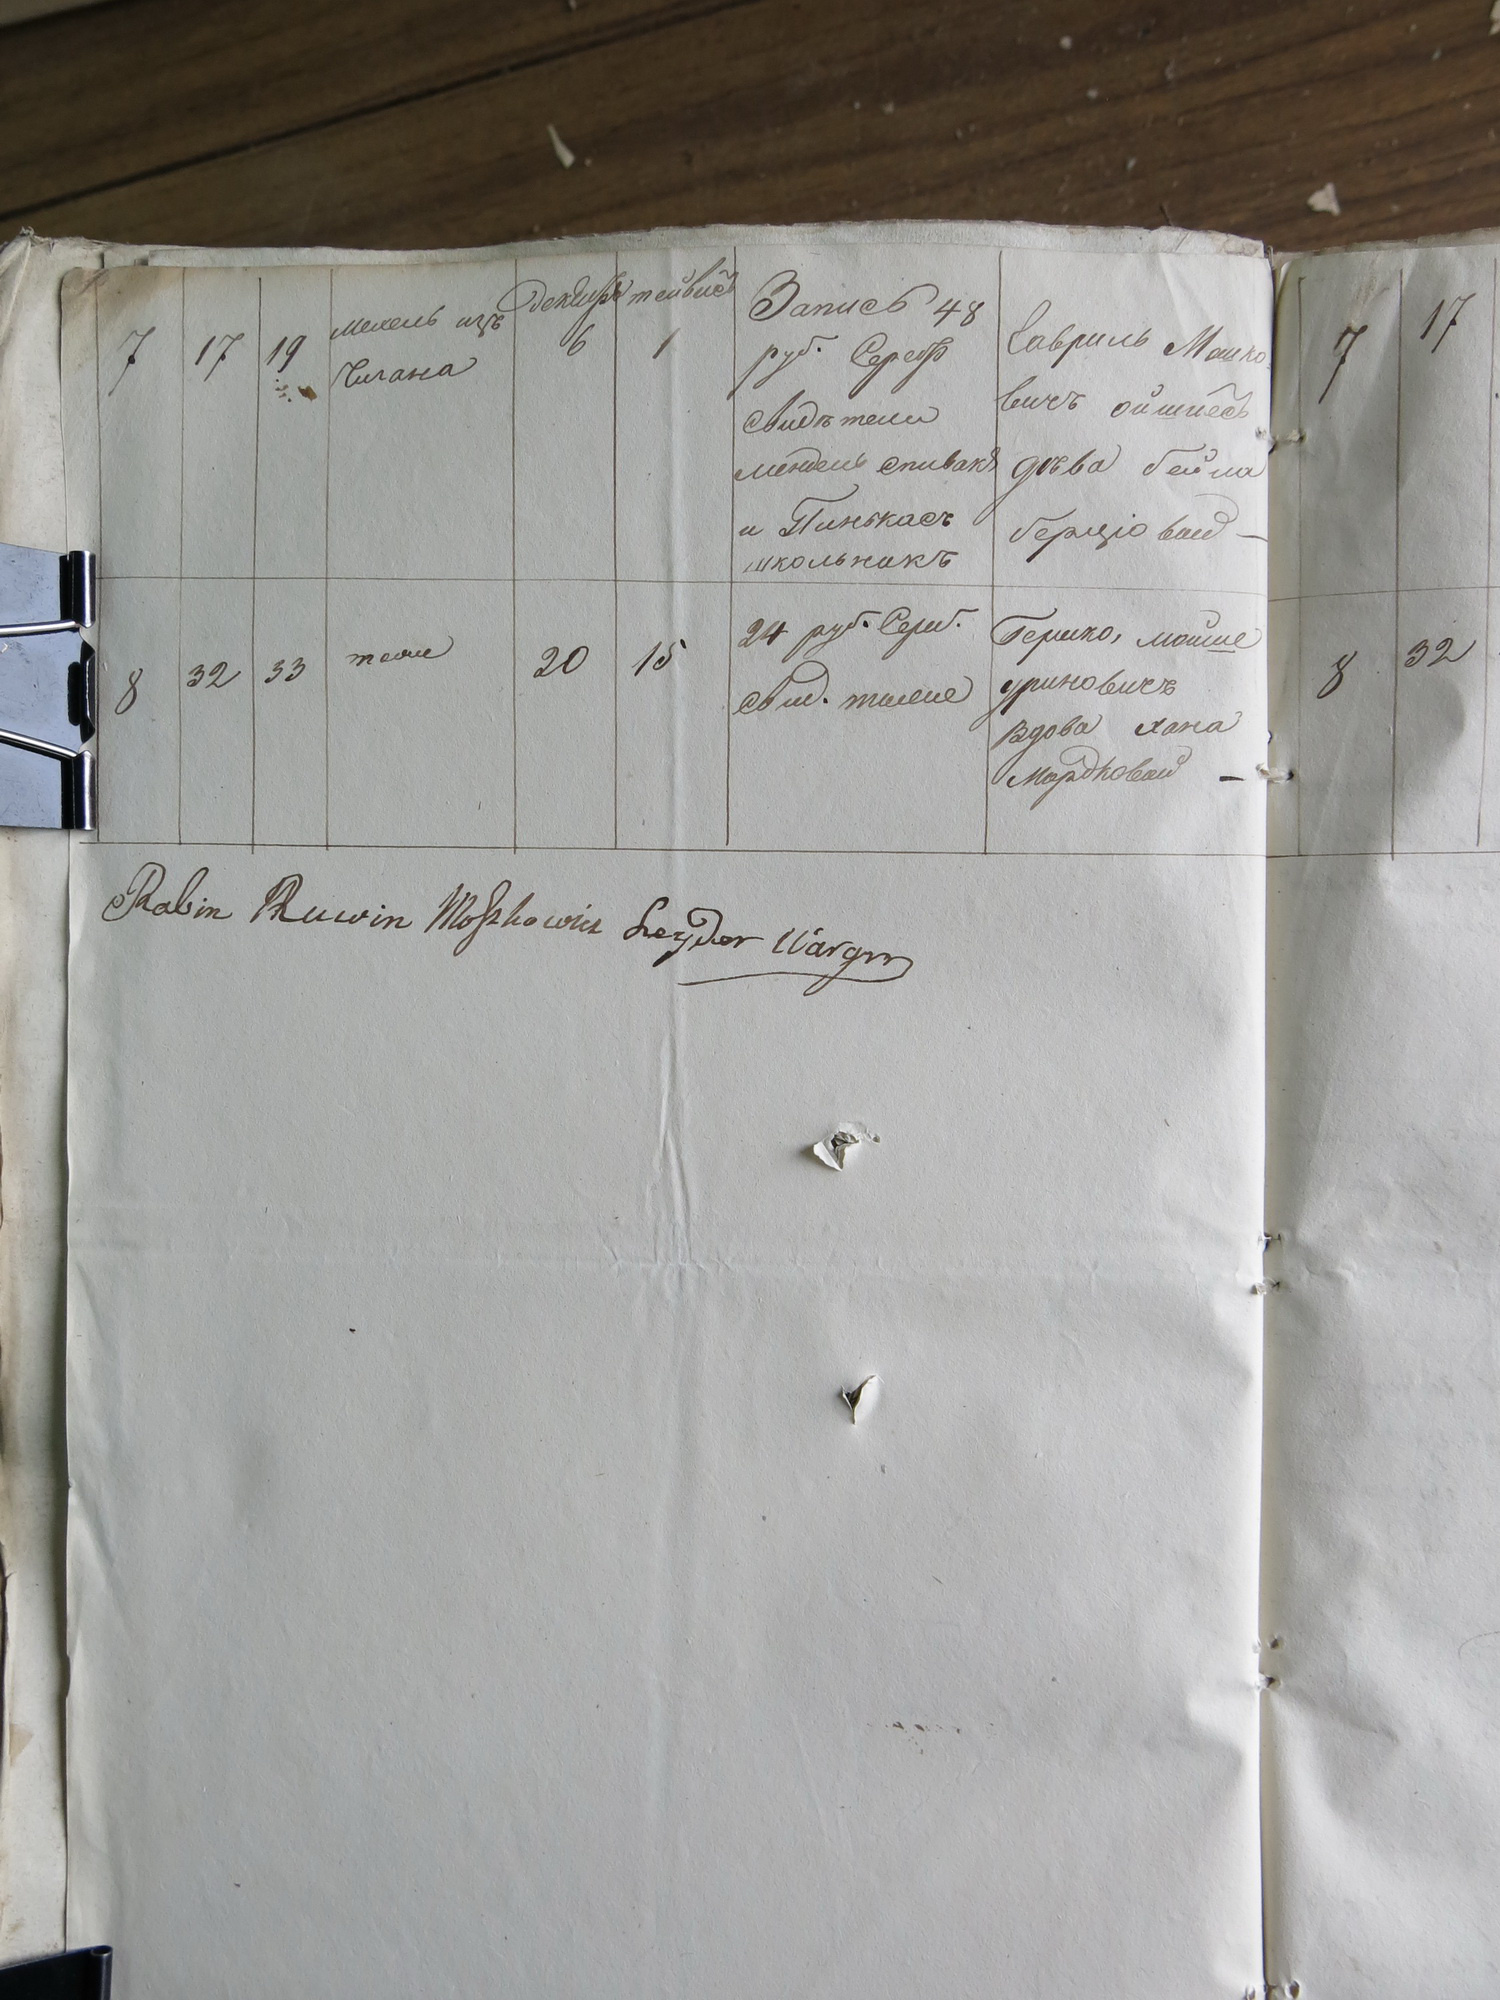 7 17 19 мехель изъ Чигана Декабръ 6 тейвисъ 1
Запись 48
руб. Серебр
Свидѣтели
мендель спивакъ
и Пинькасъ
школьникъ
Гавриль Мошко
вичъ
дѣва бейла
берціовай —
8 32 33 теже 20 15
24 руб. Сереб.
свид. теже
Гершко, мойше
уриновичъ
вдова хана
Мордковай —
Rabin Ruwin Moszkowicz
7 17
8 32